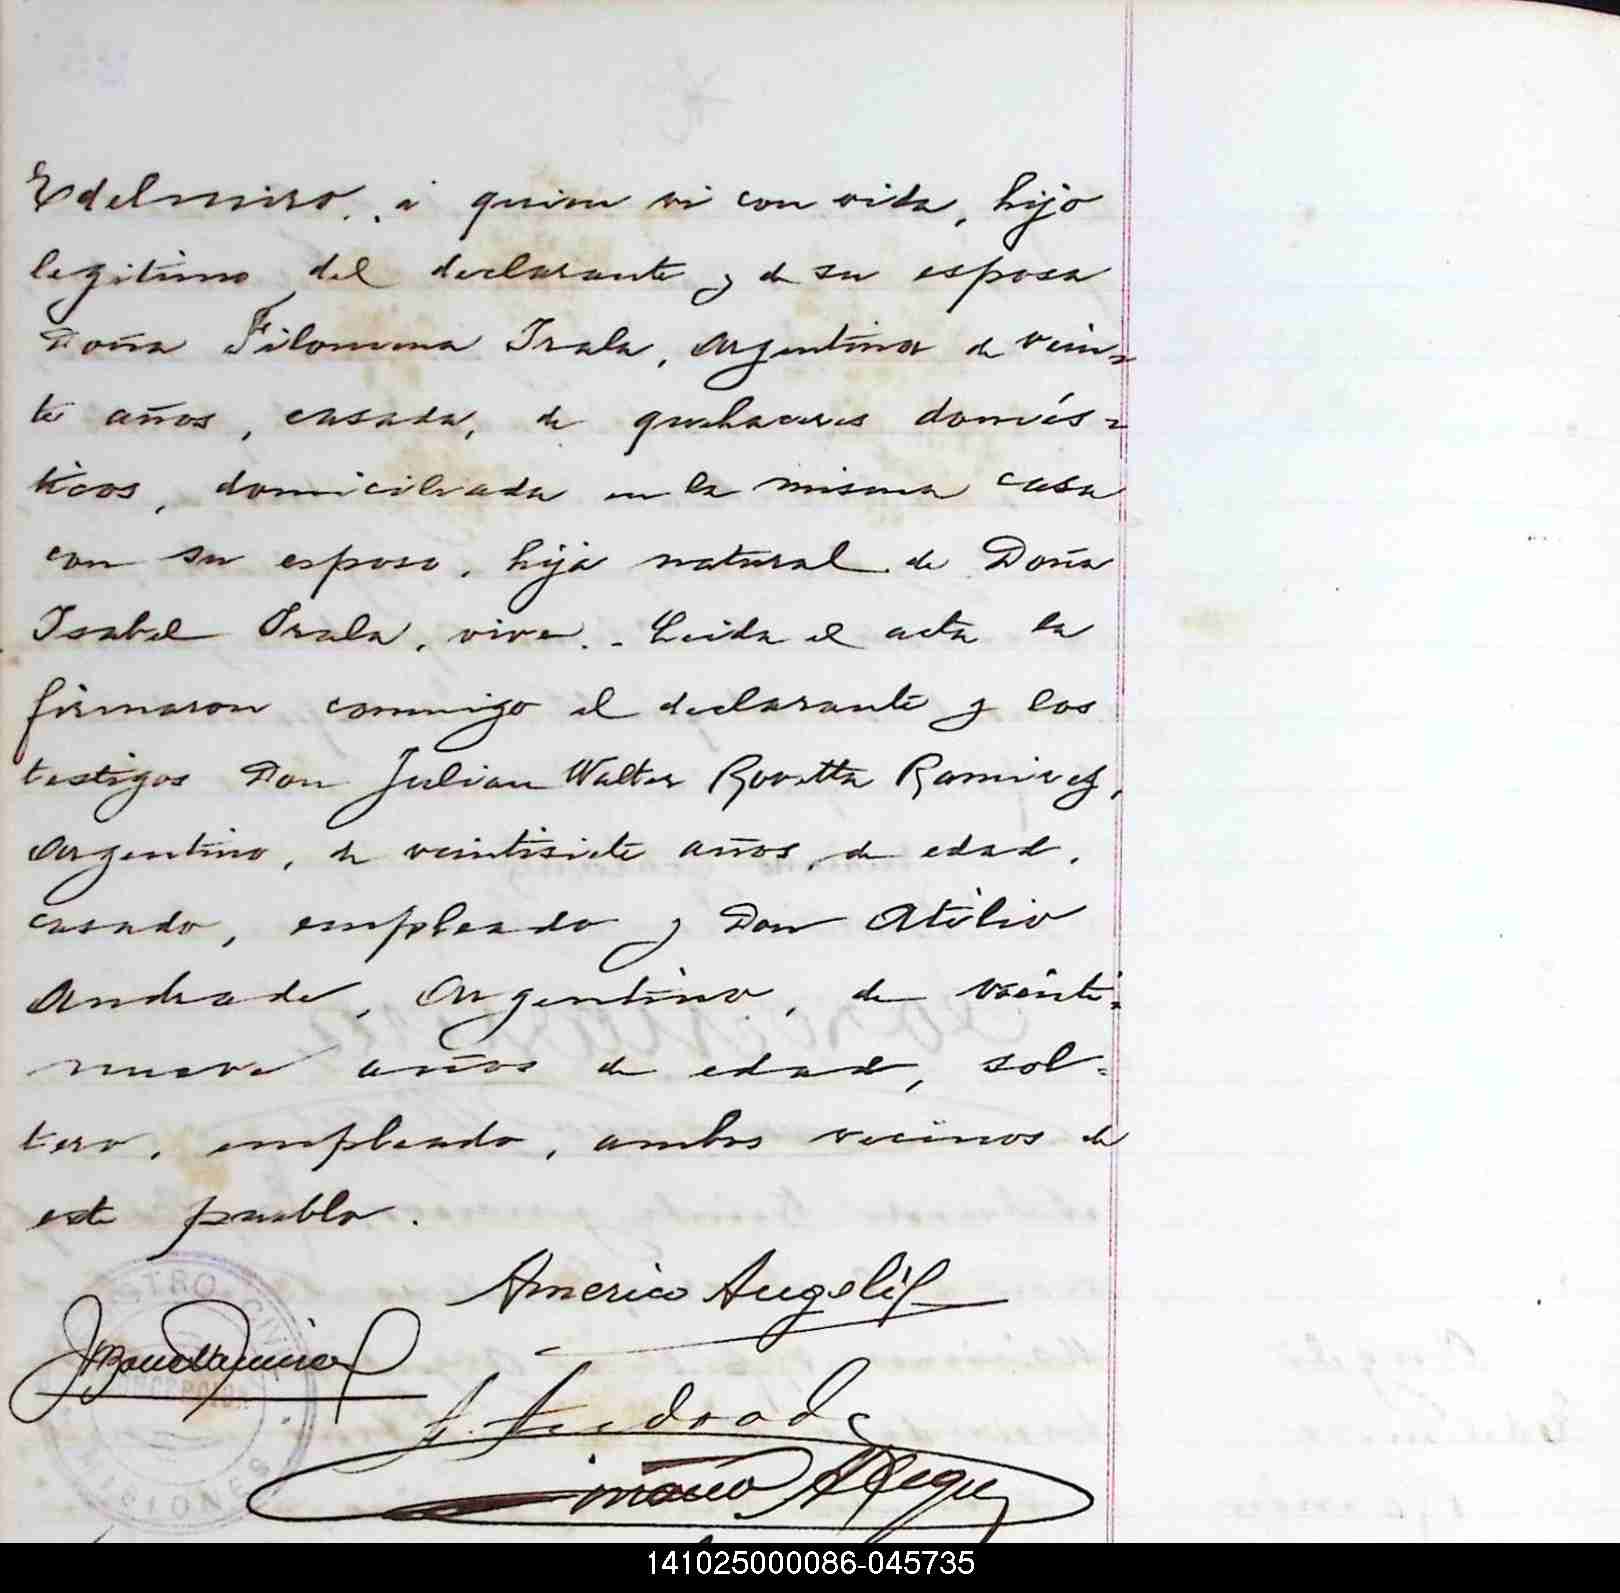 Edelmiro, á quien vi con vida, hijo
legitimo del declarante y de su esposa
Doña Filomena Irala, Argentina de vein=
te años, casada, de quehaceres domés=
ticos, domiciliada en la misma casa
con su esposo, hija natural de Doña
Isabel Irala, vive.- Leida el acta la
firmaron conmigo el declarante y los
testigos Don Julian Walter Rovetta Ramirez,
Argentino, de veintisiete años, de edad,
casado, empleado y Don Atilio
Andrade, Argentino, de veinti=
nueve años de edad, sol=
tero, empleado, ambos vecinos de
este pueblo.
Americo Angeli
A. Andrade
MISIONES
141025000086-045735